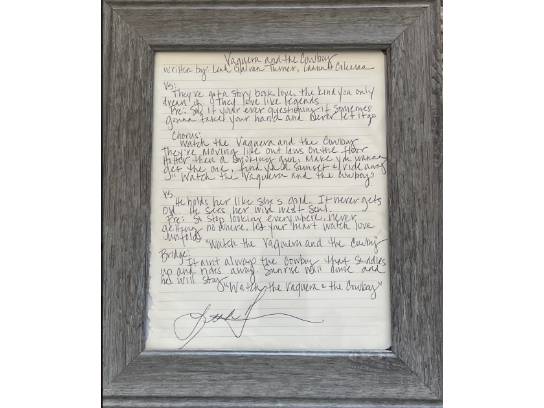 Vaquera and the Cowboy
written by: Leah Turner,
VS:
They've got a story book love, the kind you only
dream of. They love like legends
Pre: So if your ever questioning if someones
gonna take your hand and never let it go
Chorus:
Watch the Vaquera and the Cowboy
They're moving like out laws on the floor
Hotter than a smoking gun, make you wanna
get the one, find you a sunset & ride away
"Watch the Vaquera and the Cowboy"
VS
He holds her like she's gold. It never gets
old. He sees her wild west soul.
Pre: So stop looking everywhere, never
getting no where, let your heart watch love
unfold
"Watch the Vaquera and the Cowboy
Bridge:
It aint always the Cowboy that saddles
up and rides away. Sunrise will come and
he will stay
"Watch the Vaquera & the Cowboy"